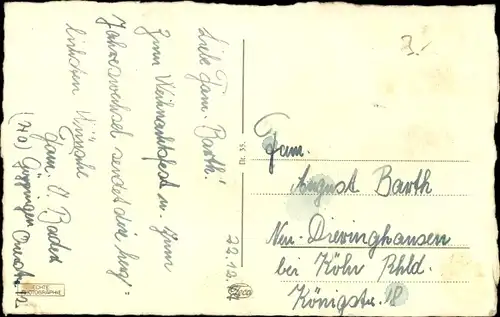 22.12.
Liebe Fam. Barth!
Zum Weihnachtsfest u. zum
Jahreswechsel sendet die herz=
lichsten Wünsche
Fam. O. Bader
Göppingen
ECHTE
PHOTOGRAPHIE
3.-
Fam.
August Barth
Neu-Dieringhausen
bei Köln Rhld.
Königstr. 18